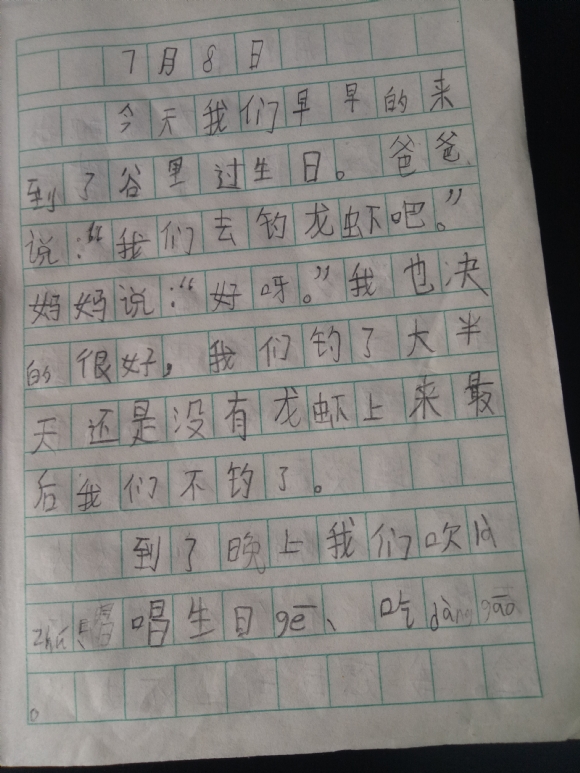 7月8日
今天我们早早的来
到了谷里过生日。爸爸
说:“我们去钓龙虾吧。”
妈妈说:“好呀。”我也决
的很好,我们钓了大半
天还是没有龙虾上来最
后我们不钓了。
到了晚上我们吹là
zhú 唱生日gē、吃dàngāo
。